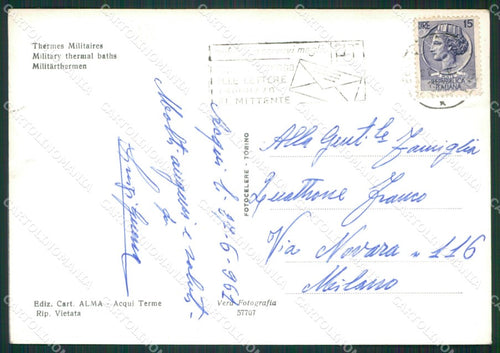 Thermes Militaires
Military thermal baths
Militärthermen
LIRE 15
REPUBBLICA
ITALIANA
LETTERE
MITTENTE
Acqui lì 27-6-962
Molti auguri e saluti
da
FOTOCELERE - TORINO
Alla Gent.le Famiglia
Quattrone Franco
Via Novara n 116
Milano
Ediz. Cart. ALMA - Acqui Terme
Rip. Vietata
Vera Fotografia
57707
CARTOLINOMANIA